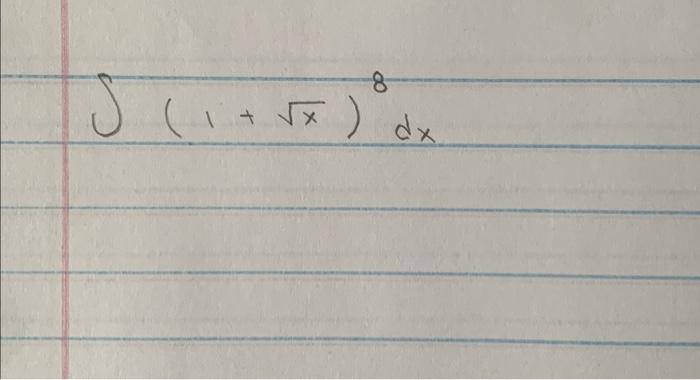 ∫ (1 + √x)⁸ dx